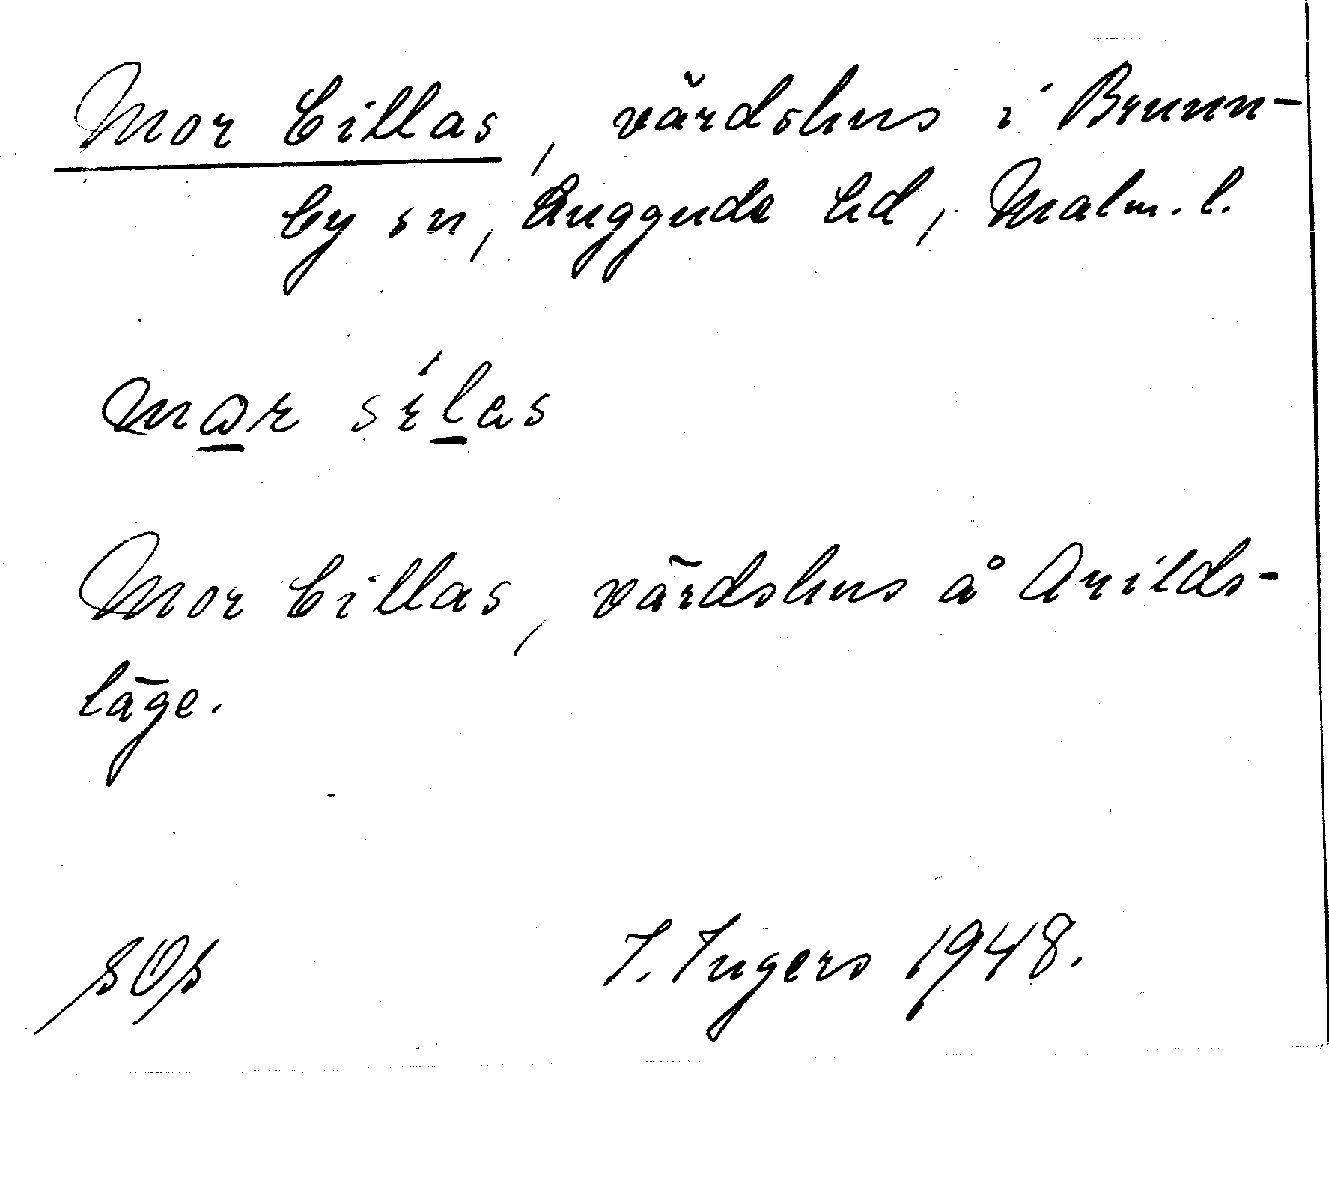 Mor Cillas, värdshus i Brunn-
by sn, Luggude hd, Malm. l.
mor sílas
Mor Cillas, värdshus å Arilds-
läge.
I. Ingers 1948.